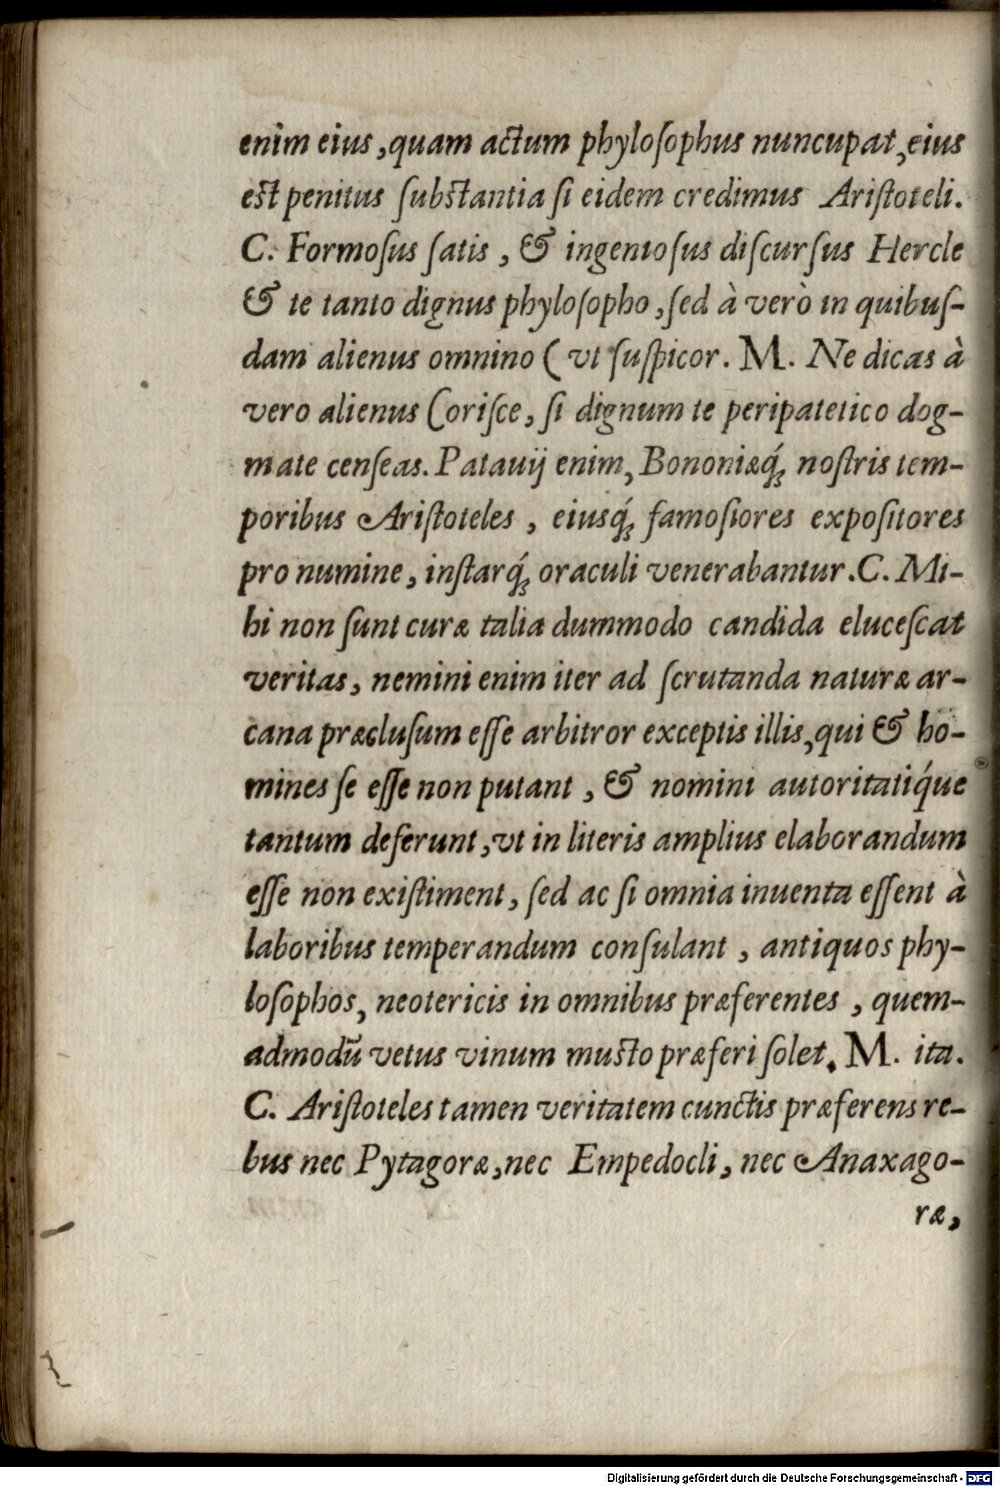 enim eius, quam actum phyloſophus nuncupat, eius
eſt penitus ſubſtantia ſi eidem credimus Ariſtoteli.
C. Formoſus ſatis, & ingenioſus diſcurſus Hercle
& te tanto dignus phyloſopho, ſed à verò in quibuſ-
dam alienus omnino (vt ſuſpicor. M. Ne dicas à
vero alienus Coriſce, ſi dignum te peripatetico dog-
mate cenſeas. Patauij enim, Bononiæq́; noſtris tem-
poribus Ariſtoteles, eiusq́; famoſiores expoſitores
pro numine, inſtarq́; oraculi venerabantur. C. Mi-
hi non ſunt curæ talia dummodo candida eluceſcat
veritas, nemini enim iter ad ſcrutanda naturæ ar-
cana præcluſum eſſe arbitror exceptis illis, qui & ho-
mines ſe eſſe non putant, & nomini autoritatiq́ue
tantum deferunt, vt in literis amplius elaborandum
eſſe non exiſtiment, ſed ac ſi omnia inuenta eſſent à
laboribus temperandum conſulant, antiquos phy-
loſophos, neotericis in omnibus præferentes, quem-
admodū vetus vinum muſto præferi ſolet. M. ita.
C. Ariſtoteles tamen veritatem cunctis præferens re-
bus nec Pytagoræ, nec Empedocli, nec Anaxago-
ræ,
Digitalisierung gefördert durch die Deutsche Forschungsgemeinschaft - DFG